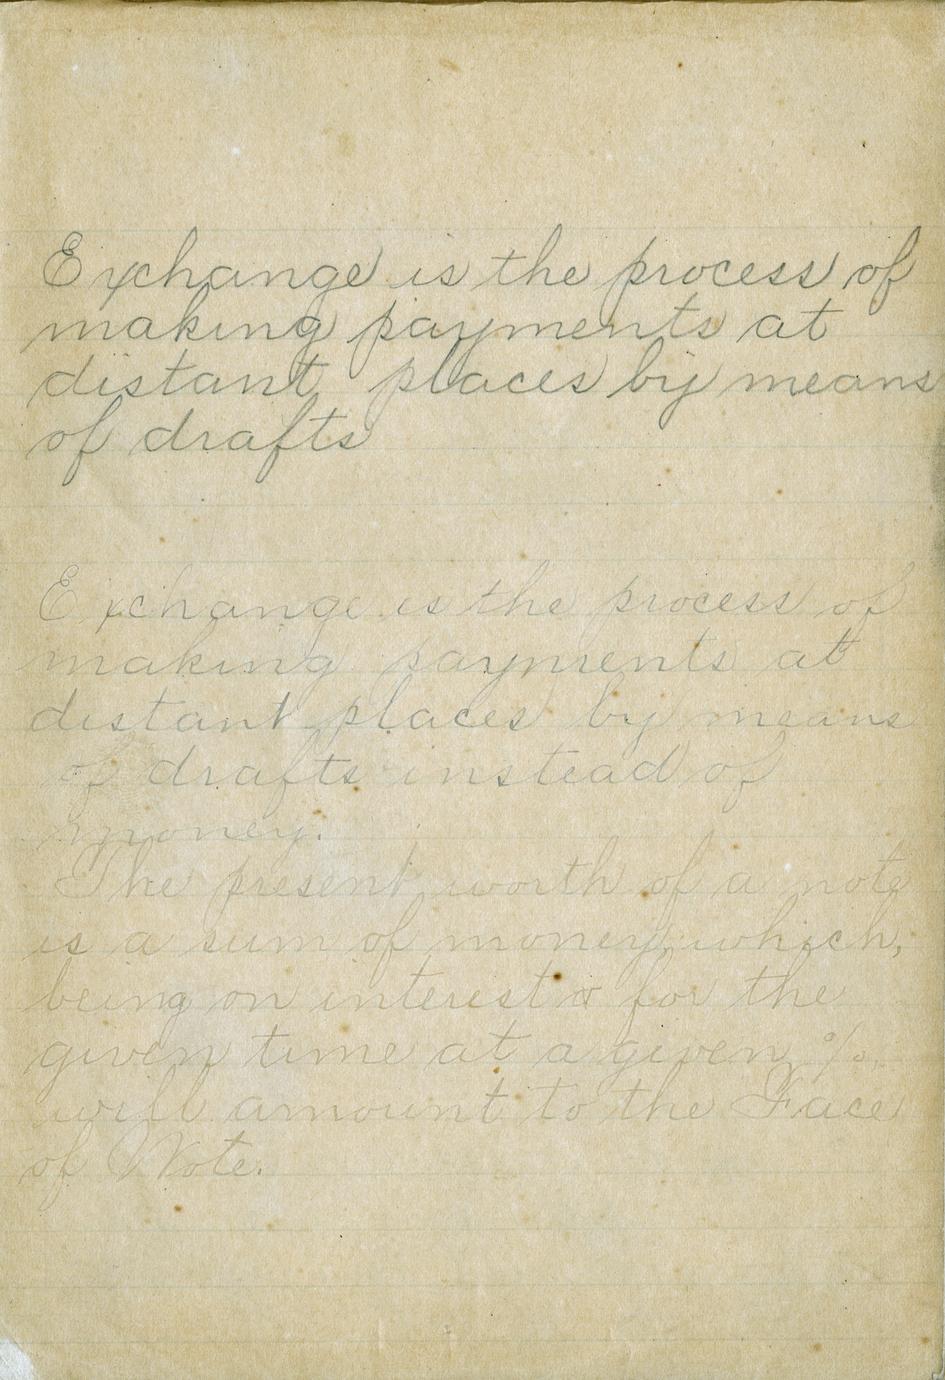 Exchange is the process of
making payments at
distant places by means
of drafts
Exchange is the process of
making payments at
distant places by means
of drafts instead of
money.
The present worth of a note
is a sum of money, which,
being on interest for the
given time at a given %,
will amount to the Face
of Note.